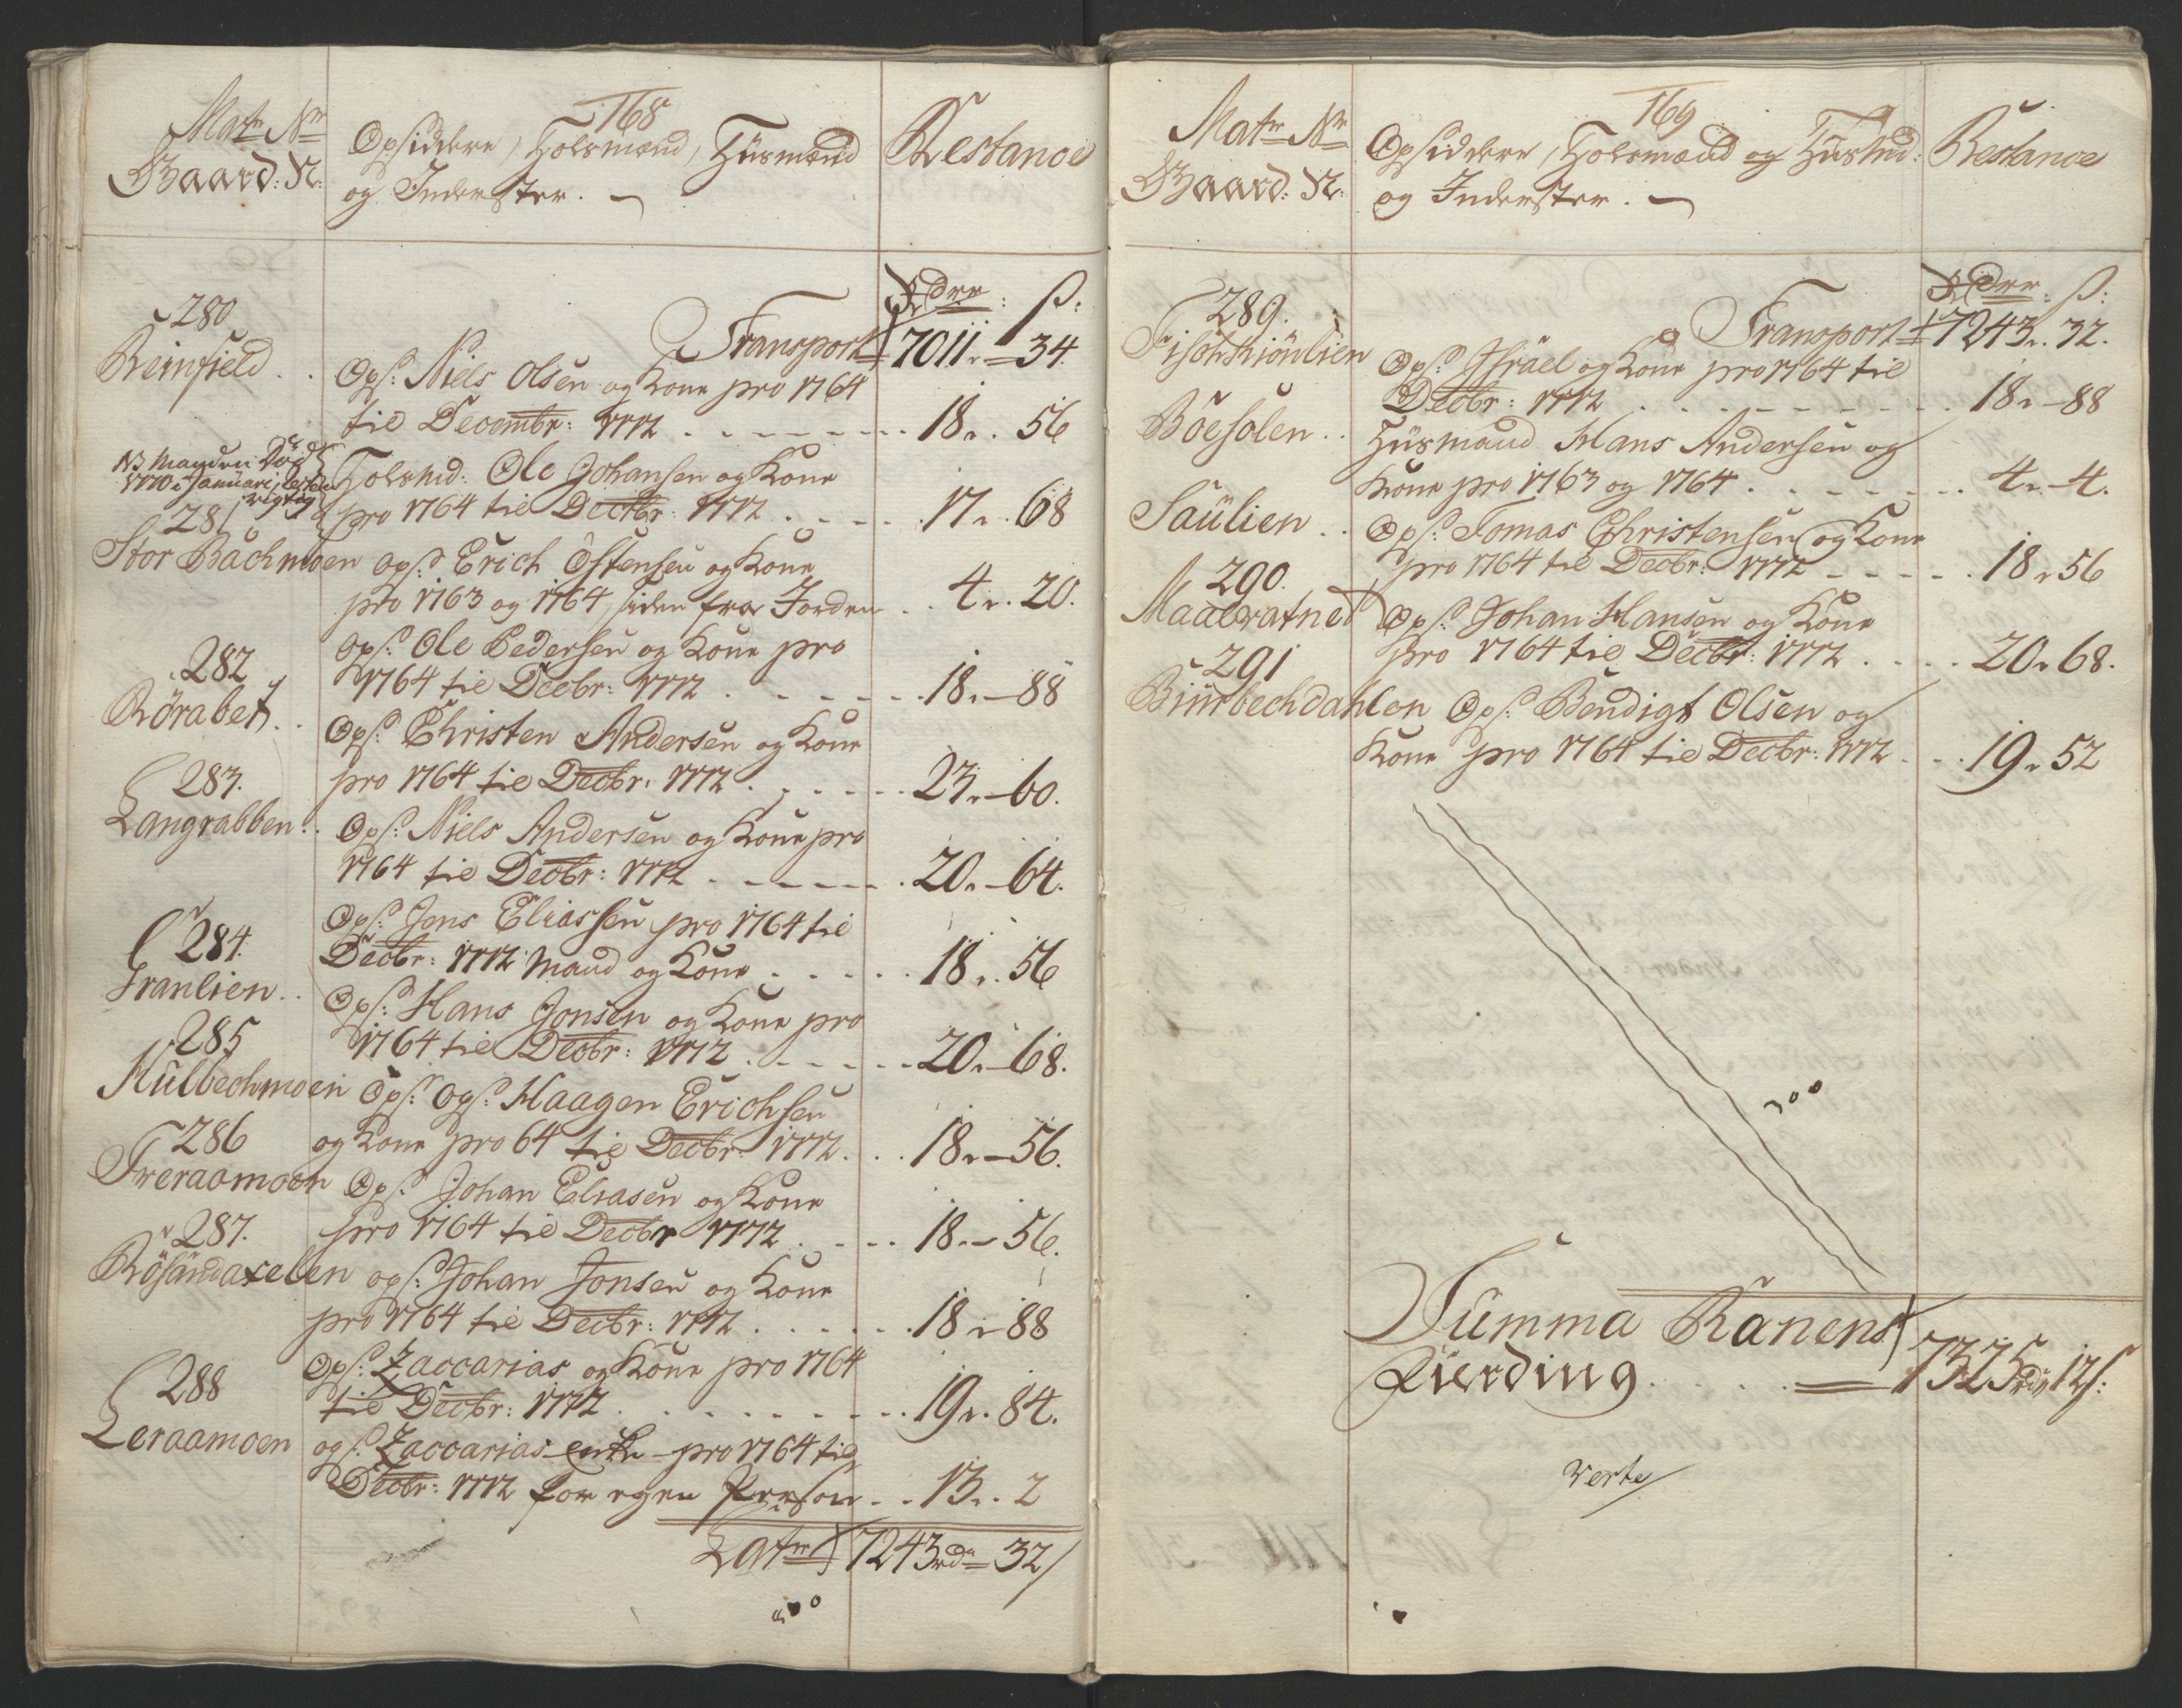 168
Matr Nr
Gaard: N:
Opsiddere, Holsmænd, Huusmænd
og Inderster.
Restance
Rdrr: s:
Transport 7011 „ 34.
280
Reinfield . .
Ops: Niels Olsen og Kone pro 1764
til Decembr: 1772 . . . 18 „ 56
NB Manden Död
1770 i Januari, resten
rigtig
Holsmd: Ole Johansen og Kone
pro 1764 til Decbr: 1772 . . . 17 „ 68
281
Stor Bachmoen Ops: Erich Ostensen og Kone
pro 1763 og 1764, siden fra Jorden . . 4 „ 20.
Ops: Ole Pedersen og Kone pro
1764 til Decbr: 1772 . . . 18 „ 88
282
Rörabet . .
Ops: Christen Andersen og Kone
pro 1764 til Decbr: 1772 . . . 23 „ 60.
283.
Langrabben . .
Ops: Niels Andersen og Kone pro
1764 til Decbr: 1772 . . . 20 „ 64.
Ops: Jens Eliassen pro 1764 til
Decbr: 1772 Mand og Kone . . . 18 „ 56
284.
Granlien . .
Ops: Hans Jonsen og Kone pro
1764 til Decbr: 1772 . . . 20 „ 68.
285
Hulbechmoen Ops: Ops: Haagen Erichsen
og Kone pro 64 til Decbr: 1772 . . 18 „ 56.
286
Treraamoen Ops: Johan Eliasen og Kone
pro 1764 til Decbr 1772 . . . 18 „ 56.
287.
Rösandaxelen ops: Johan Jonsen og Kone
pro 1764 til Decbr: 1772 . . . 18 „ 88
Ops: Zaccarias og Kone pro 1764
til Decbr: 1772 . . . 19 „ 84.
288
Leraamoen ops: Zaccarias enke pro 1764 til
Decbr: 1772 for egen Person . . 13 „ 2
Latr 7243 rd 32/
169
Matr Nr
Gaard: N:
Opsiddere, Holsmænd og Huusmd:
og Inderster.
Restance
Rdrr: s:
Transport 7243 „ 32.
289.
Ops: Israel og Kone pro 1764 til
Decbr: 1772 . . . 18 „ 88
Böesolen . .
Huusmand Hans Andersen og
Kone pro 1763 og 1764 . . . 4 „ 4.
Saulien . .
Ops: Tomas Christensen og Kone
pro 1764 til Decbr: 1772 . . . 18 „ 56
290.
Maalvatnet Ops: Johan Hansen og Kone
pro 1764 til Decbr: 1772 . . . 20 „ 68.
291
Biurbechdahlen Ops: Bendigt Olsen og
Kone pro 1764 til Decbr: 1772 . . 19 „ 52
Summa Ranens
Fierding . . . 7325 rd 12 s:
Verte